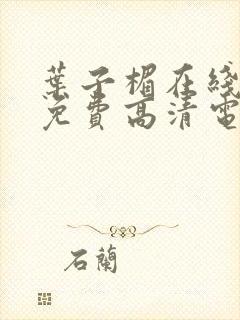 葉子楣在綫
免費高清電
石蘭